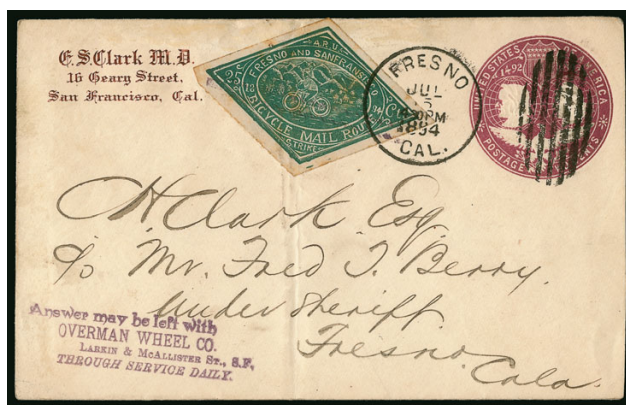 E.S.Clark M.D.
16 Geary Street,
San Francisco, Cal.
A.R.U.
FRESNO AND SAN FRANSISCO
BICYCLE MAIL ROUTE
STRIKE
25
18 94
FRESNO
JUL
1894
CAL.
UNITED STATES OF AMERICA
1492
POSTAGE CENTS
H Clark Esq.
c/o Mr. Fred J. Berry.
Under Sheriff.
Fresno
Cala.
Answer may be left with
OVERMAN WHEEL CO.
LARKIN & MCALLISTER ST., S.F,
THROUGH SERVICE DAILY.